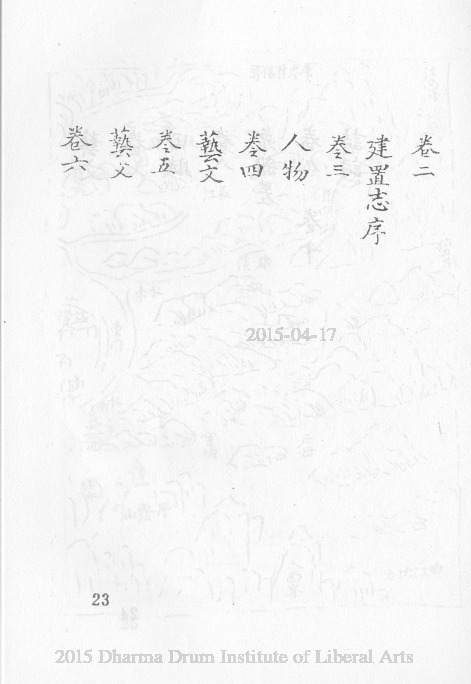 卷二
建置志序
卷三
人物
卷四
藝文
卷五
藝文
卷六
2015-04-17
23
2015 Dharma Drum Institute of Liberal Arts